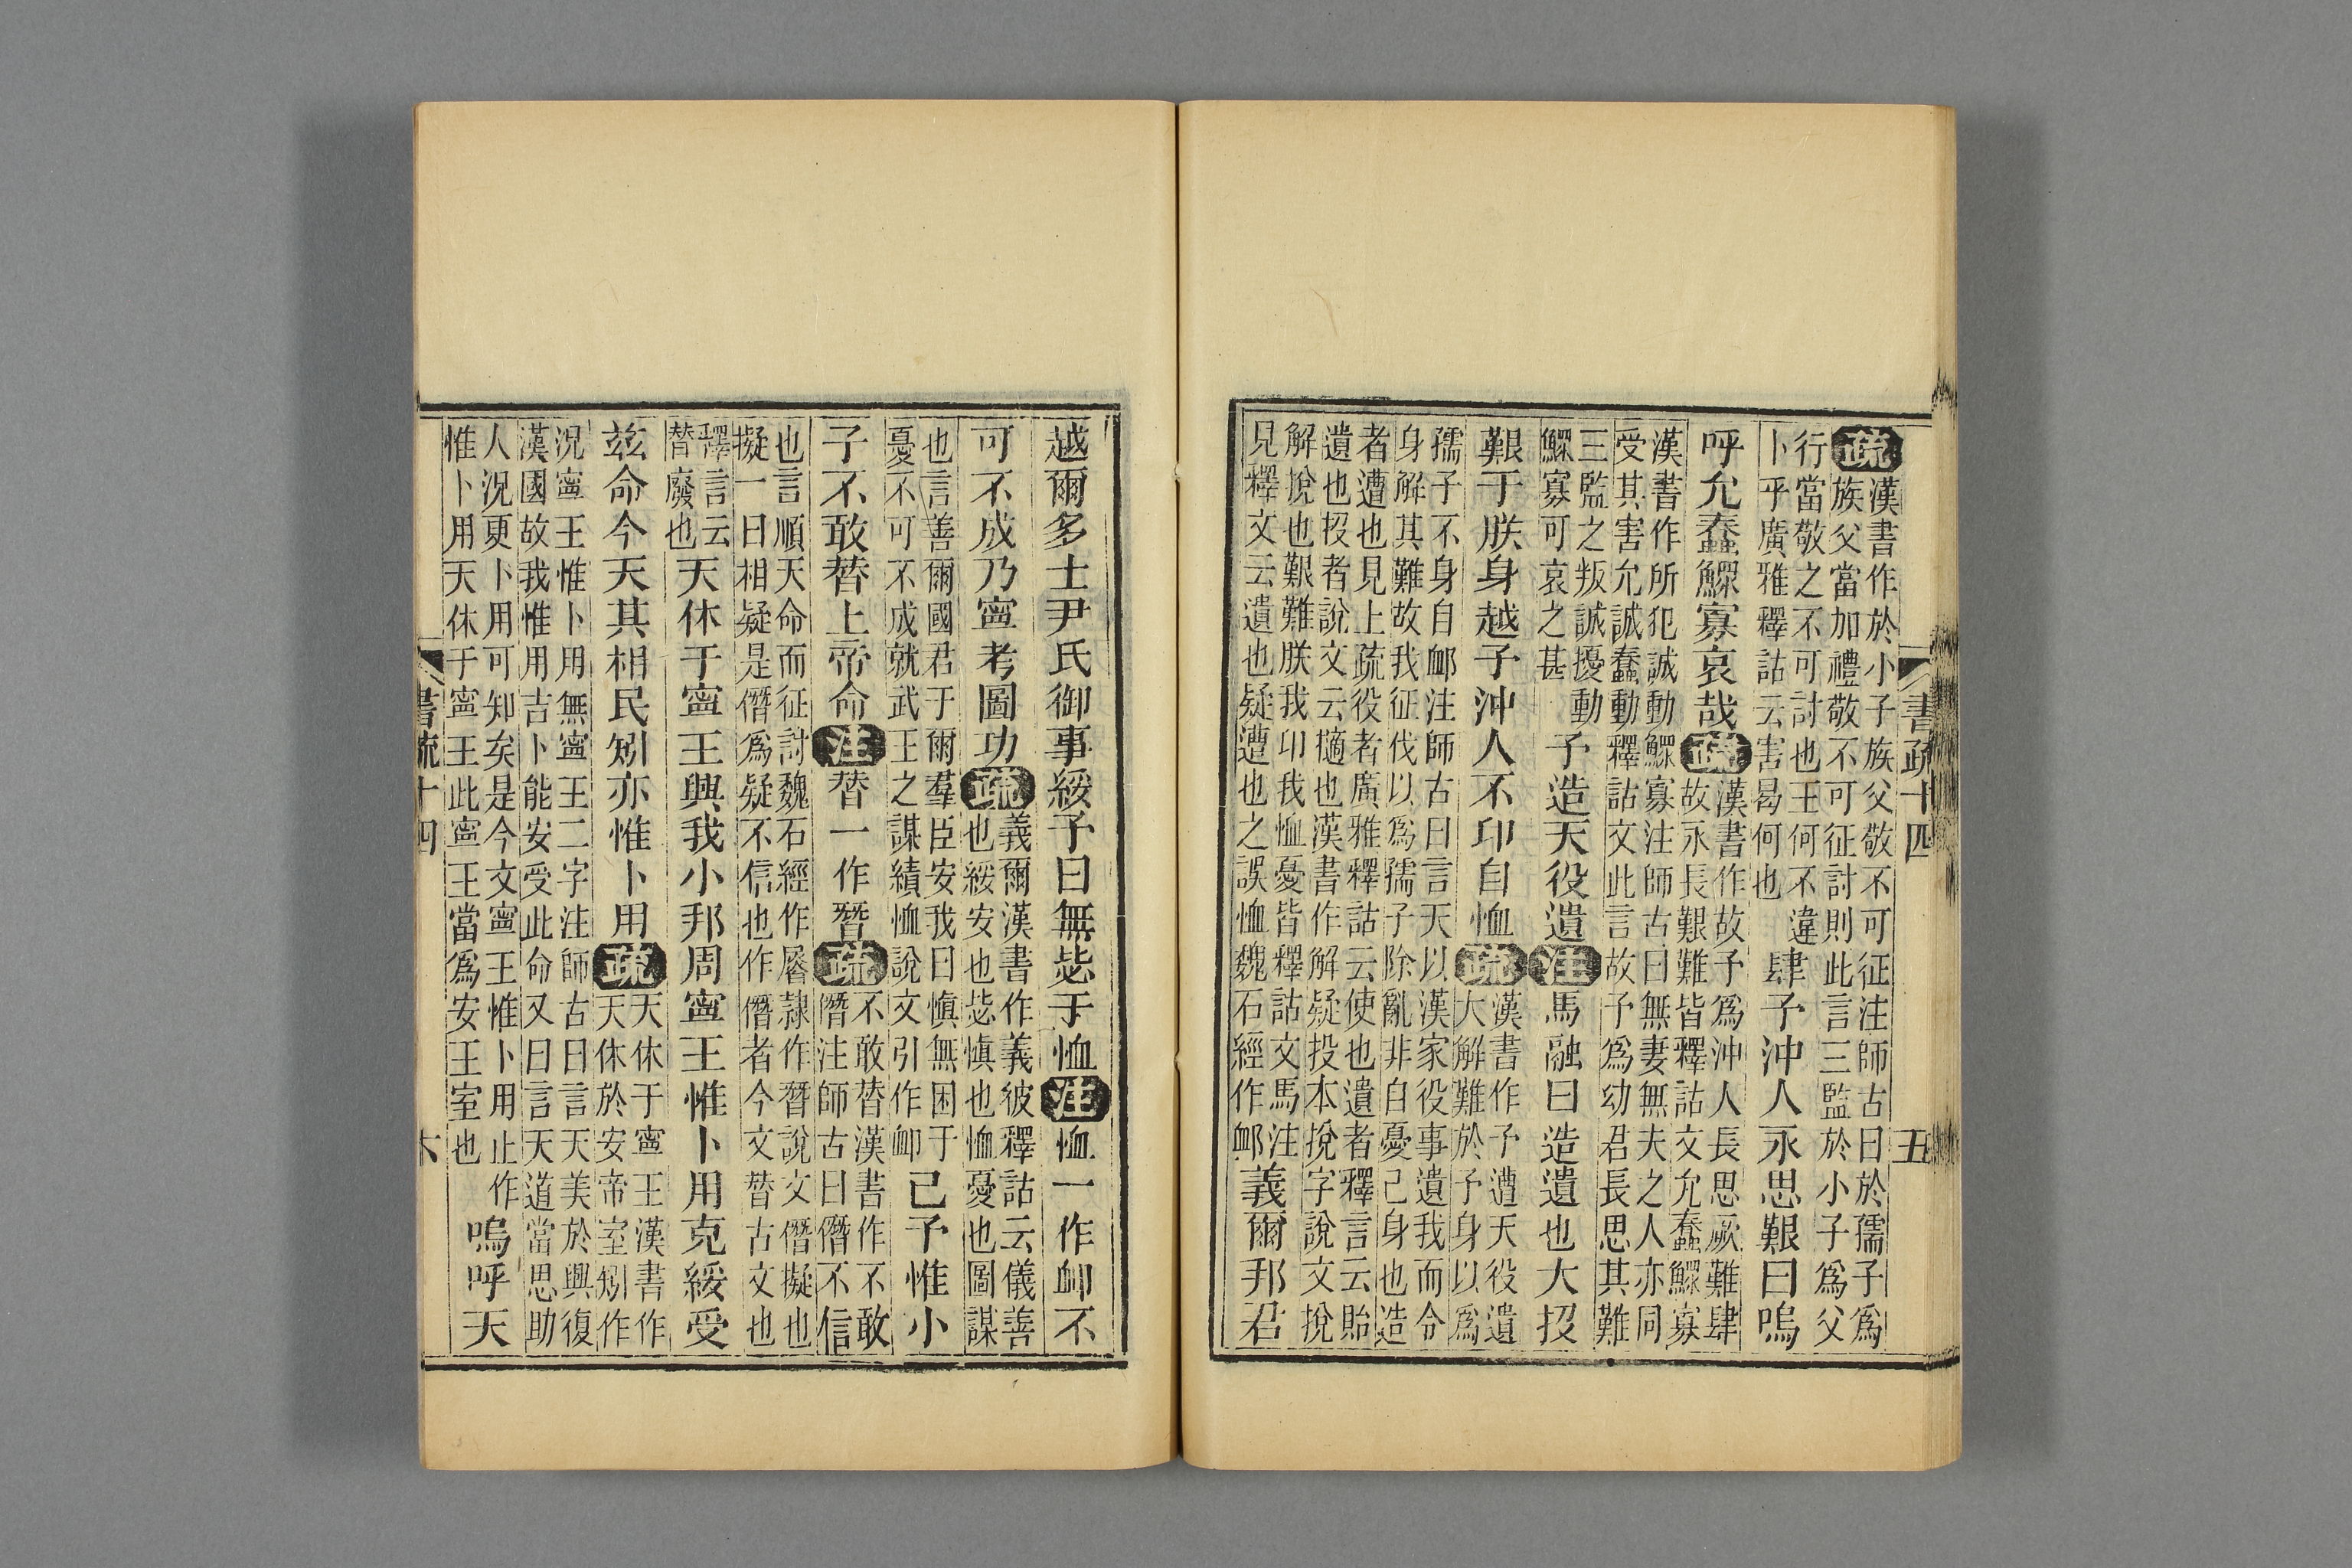 疏漢書作於小子族父敬不可征注師古曰於孺子爲
族父當加禮敬不可征討則此言三監於小子爲父
行當敬之不可討也王何不違
卜乎廣雅釋詁云害曷何也
肆予沖人永思艱曰嗚
呼允蠢鰥寡哀哉疏漢書作故予爲沖人長思厥難肆
故永長艱難皆釋詁文允蠢鰥寡
漢書作所犯誠動鰥寡注師古曰無妻無夫之人亦同
受其害允誠蠢動釋詁文此言故予爲幼君長思其難
三監之叛誠擾動
鰥寡可哀之甚
予造天役遺注馬融曰造遺也大投
艱于朕身越予沖人不卬自恤疏漢書作予遭天役遺
大解難於予身以爲
孺子不身自卹注師古曰言天以漢家役事遺我而令
身解其難故我征伐以爲孺子除亂非自憂己身也造
者遭也見上疏役者廣雅釋詁云使也遺者釋言云貽
遺也投者說文云擿也漢書作解疑投本挩字說文挩
解挩也艱難朕我卬我恤憂皆釋詁文馬注
見釋文云遺也疑遭也之誤恤魏石經作卹
義爾邦君
書疏十四
五
越爾多士尹氏御事綏予曰無毖于恤注恤一作卹不
可不成乃寧考圖功疏義爾漢書作義彼釋詁云儀善
也綏安也毖愼也恤憂也圖謀
也言善爾國君于爾羣臣安我曰愼無困于
憂不可不成就武王之謀績恤說文引作卹
己予惟小
子不敢替上帝命注替一作朁疏不敢替漢書作不敢
僭注師古曰僭不信
也言順天命而征討魏石經作㬱隸作朁說文僭擬也
擬一曰相疑是僭爲疑不信也作僭者今文替古文也
釋言云
替廢也
天休于寧王興我小邦周寧王惟卜用克綏受
茲命今天其相民矧亦惟卜用疏天休于寧王漢書作
天休於安帝室矧作
況寧王惟卜用無寧王二字注師古曰言天美於興復
漢國故我惟用吉卜能安受此命又曰言天道當思助
人況更卜用可知矣是今文寧王惟卜用止作
惟卜用天休于寧王此寧王當爲安王室也
嗚呼天
書疏十四